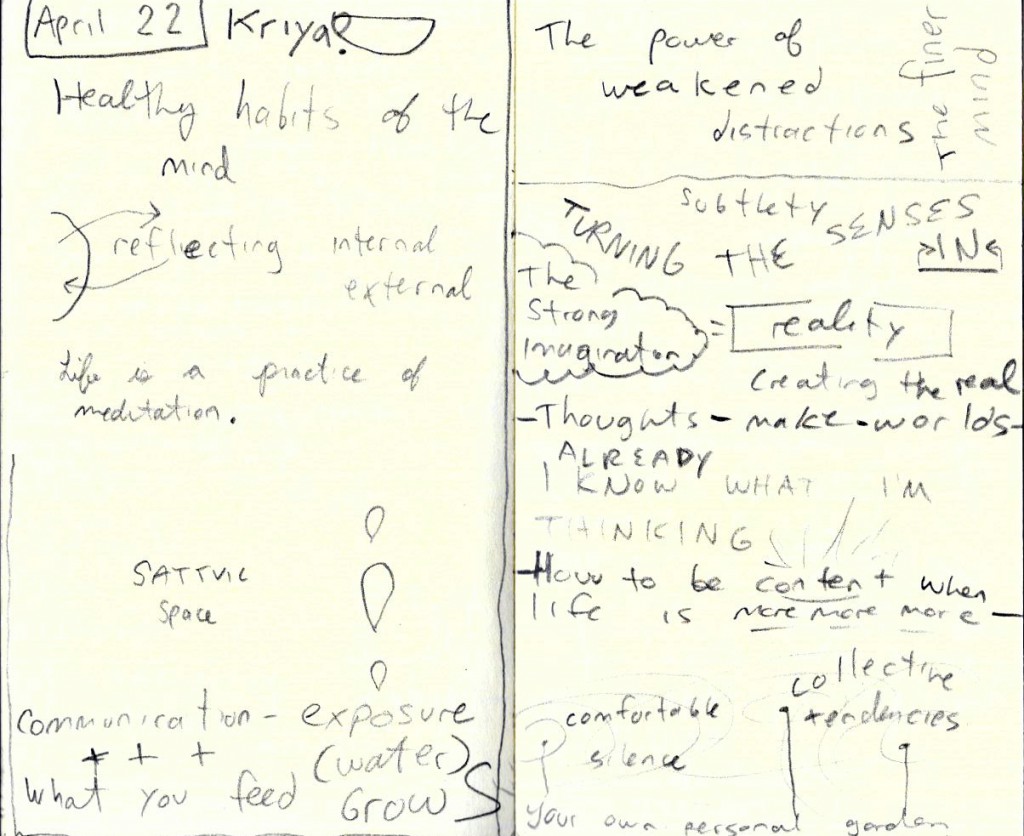 April 22 Kriya?
Healthy habits of the
mind
reflecting internal
external
Life is a practice of
meditation.
SATTVIC
Space
communication - exposure
+ + + (water)
What you feed GROWS
The power of
weakened
distractions
The finer
mind
Subtlety
TURNING THE SENSES
>IN<
The
Strong
Imagination = reality
Creating the real
-Thoughts - make - worlds-
ALREADY
I KNOW WHAT I'M
THINKING
-How to be content when
life is more more more-
collective
tendencies
comfortable
silence
your own personal garden